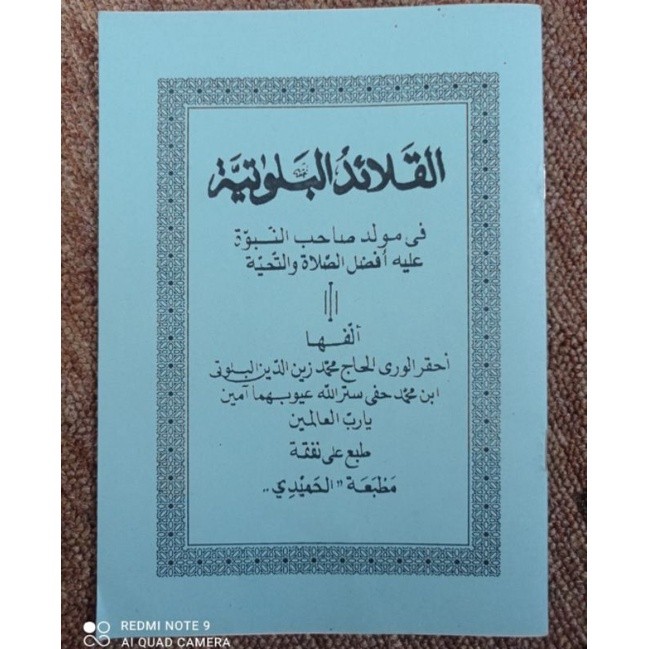 القلائد البلوتية
فى مولد صاحب النبوة
عليه أفضل الصلاة والتحية
ألفها
أحقر الورى الحاج محمد زين الدين البلوتى
ابن محمد حفى ستر الله عيوبهما آمين
يارب العالمين
طبع على نفقة
مطبعة "الحميدي"
REDMI NOTE 9
AI QUAD CAMERA